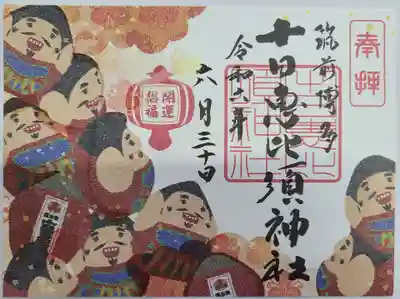 奉拝
筑前博多
十日恵比須神社
令和六年
六月三十日
開運
招福